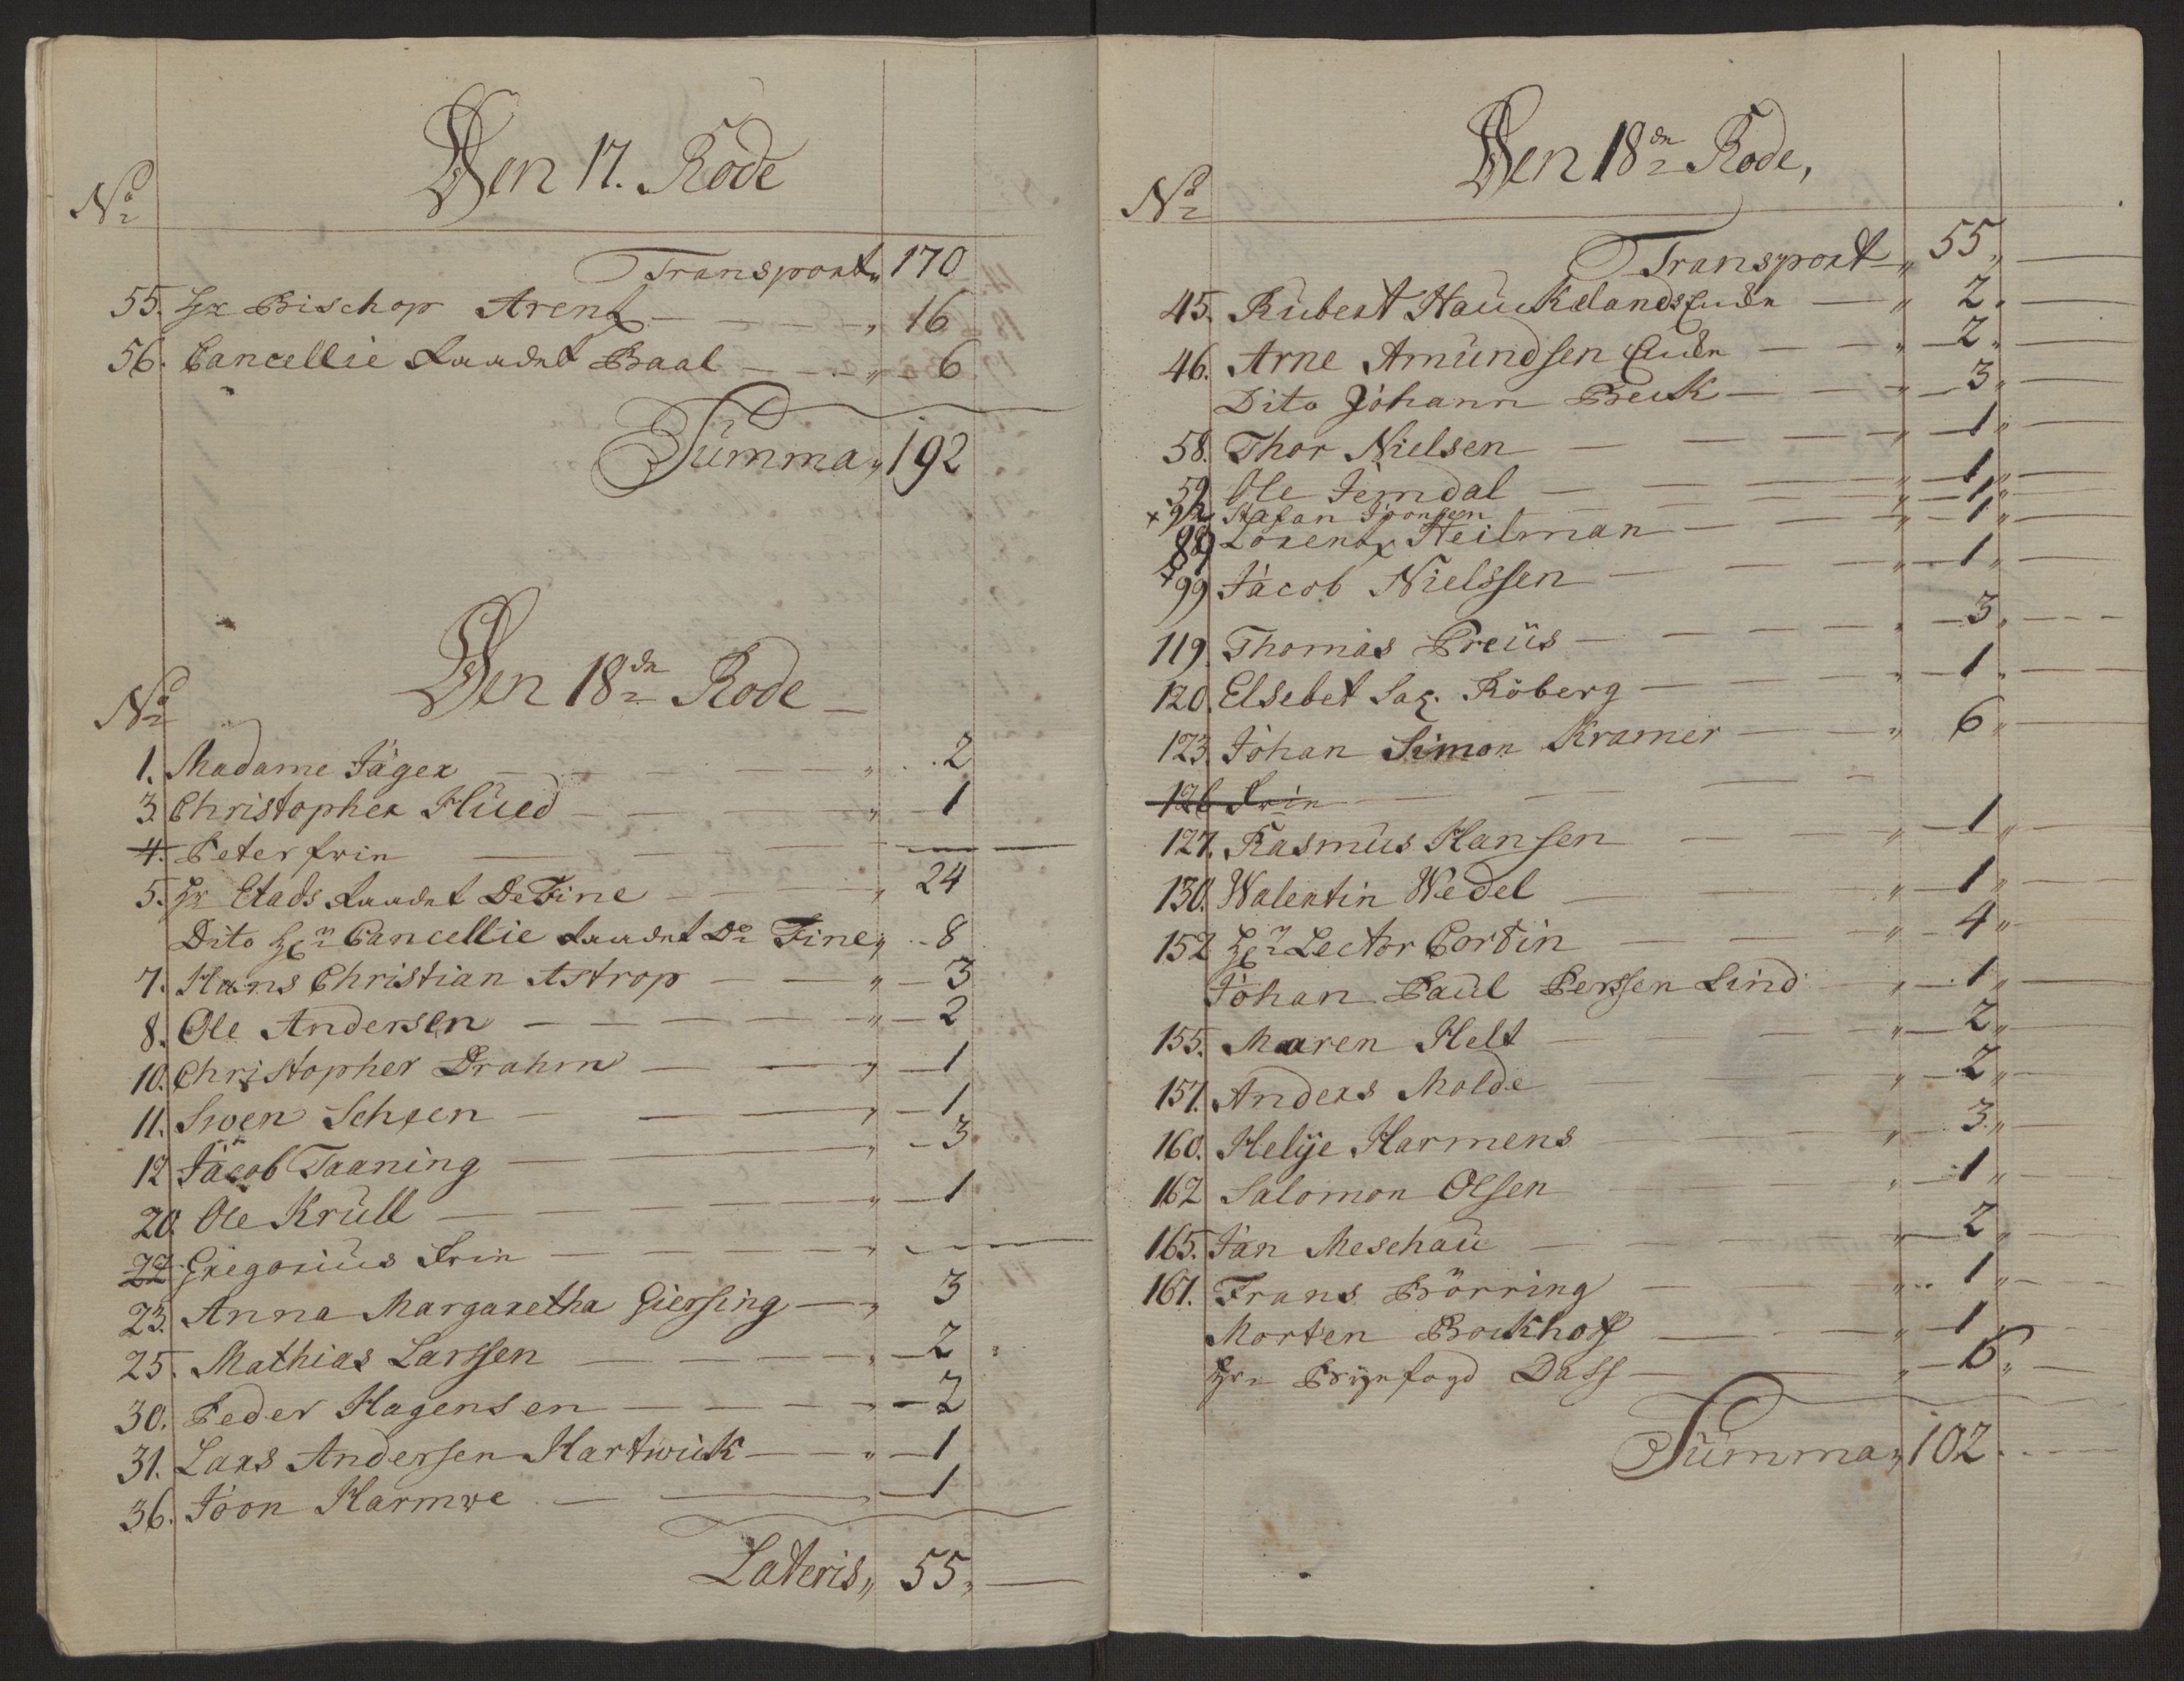 Den 17. Rode
No
Transport „ 170
55. Hr Bischop Arentz „ 16
56. Cancellie Raadet Baal „ 6
Summa „ 192
Den 18de Rode
No
1. Madame Jäger „ 2
3. Christopher Hued „ 1
4. Peter frie
5. Hr Etads Raadet De Fine „ 24
Dito Hrn Cancellie Raadet De Fine „ 8
7. Hans Christian Astrop „ 3
8. Ole Andersen „ 2
10. Christopher Drahm „ 1
11. Swen Scheen „ 1
12 Jacob Taaning „ 3
20. Ole Krull „ 1
22. Gregorius Frie „
23. Anna Margaretha Giersing „ 3
25. Mathias Larssen „ 2
30. Peder Hagensen „ 2
31. Lars Andersen Hartwick „ 1
36. Joon Harmwe „ 1
Lateris „ 55 „
Den 18de Rode,
No
Transport „ 55 „
45. Rubert Hauckelands Encke „ 2 „
46. Arne Amundsen Encke „ 2 „
Dito Johann Beck „ 3 „
58. Thor Nielsen „ 1 „
59. Ole Jemdal „ 1 „
+ 92 Stafan Joonsen „ 1 „
89 Lorentz Heilman „ 1 „
+ 99 Jacob Nielssen „ 1
119. Thomas Preus „ 3 „
120. Elsebet Sag. Röberg „ 1 „
123. Johan Simon Kramer „ 6 „
126 Frie
127. Rasmus Hansen „ 1 „
130. Walentin Wedel „ 1 „
152 Hrn Lector Cortin „ 4 „
Johan Paul Perssen Lind „ 1 „
155. Maren Helt „ 2 „
157. Anders Molde „ 2 „
160. Helije Harmens „ 3 „
162 Salomon Olsen „ 1 „
165. Jan Meschau „ 2 „
167. Frans Börring „ 1 „
Morten Bockhoff „ 1 „
Hr Byefogd Dass „ 6 „
Summa „ 102